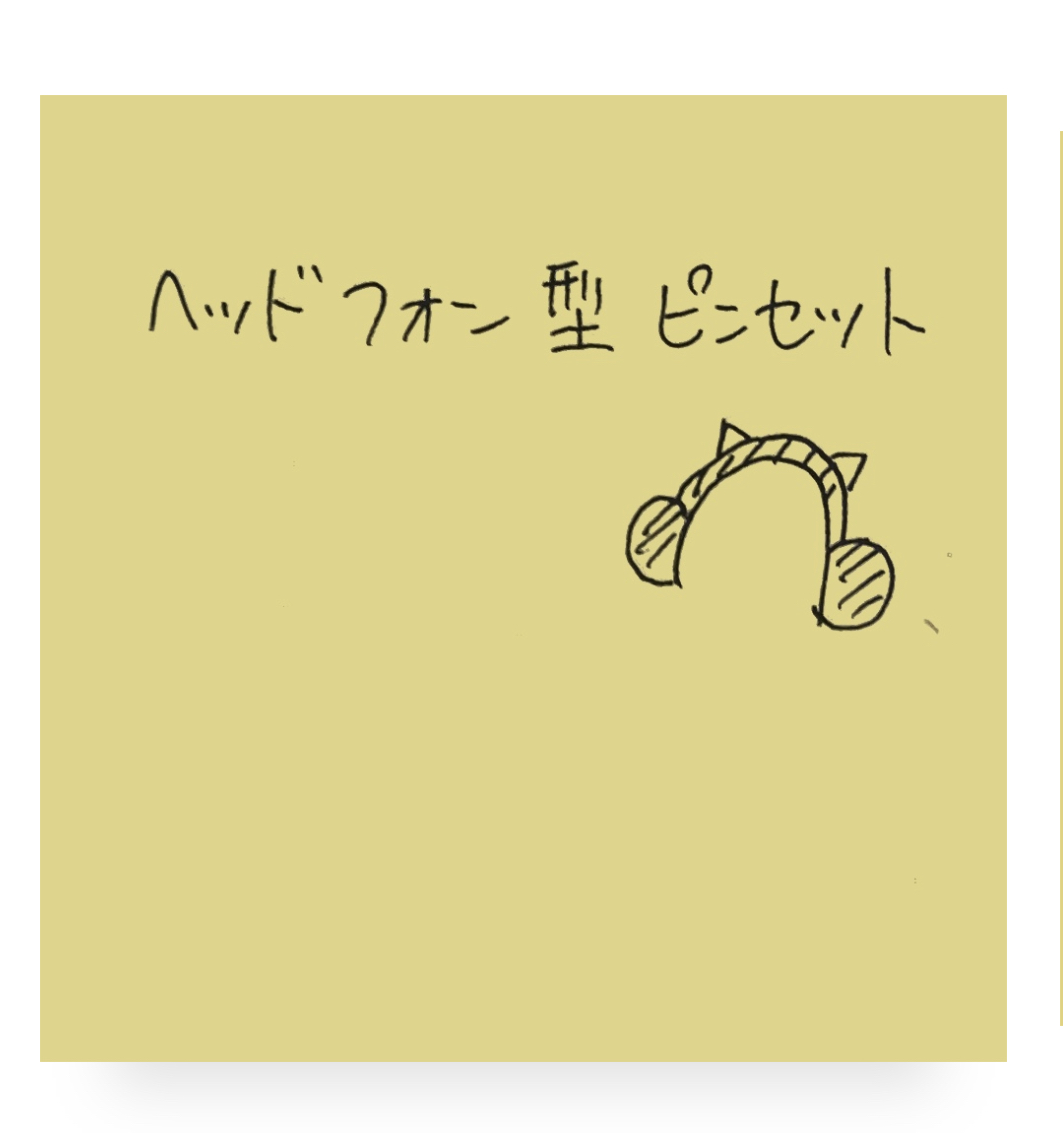 ヘッドフォン型ピンセット